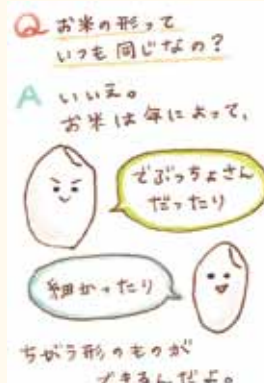 Q お米の形って
いつも同じなの？
A いいえ。
お米は年によって、
でぶっちょさん
だったり
細かったり
ちがう形のものが
できるんだよ。